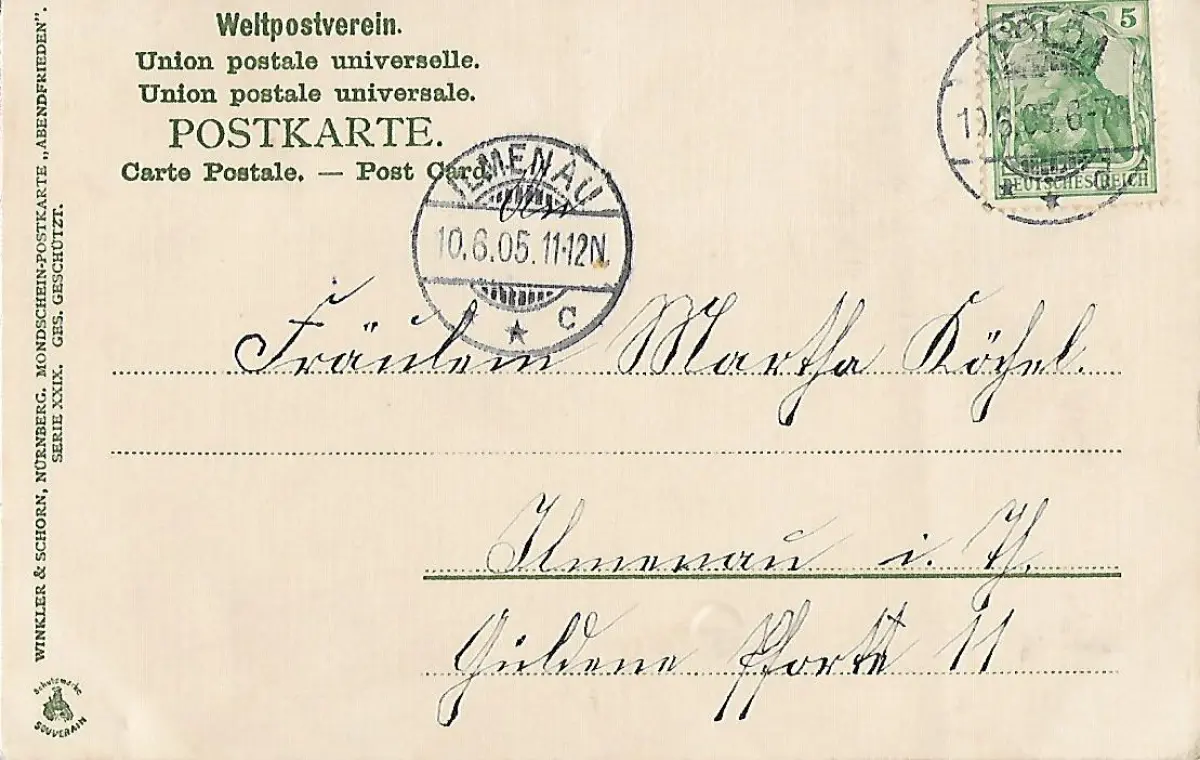 Weltpostverein.
Union postale universelle.
Union postale universale.
POSTKARTE.
Carte Postale. — Post Card.
5 5
10.6.05. 6-7
DEUTSCHES REICH
ILMENAU
An
10.6.05. 11-12N.
* C
Fräulein Martha Köhel.
Ilmenau i. Th.
Güldene Pforte 11
WINKLER & SCHORN, NÜRNBERG. MONDSCHEIN-POSTKARTE „ABENDFRIEDEN".
SERIE XXIX. GES. GESCHÜTZT.
Schutzmarke
SOUVERAIN